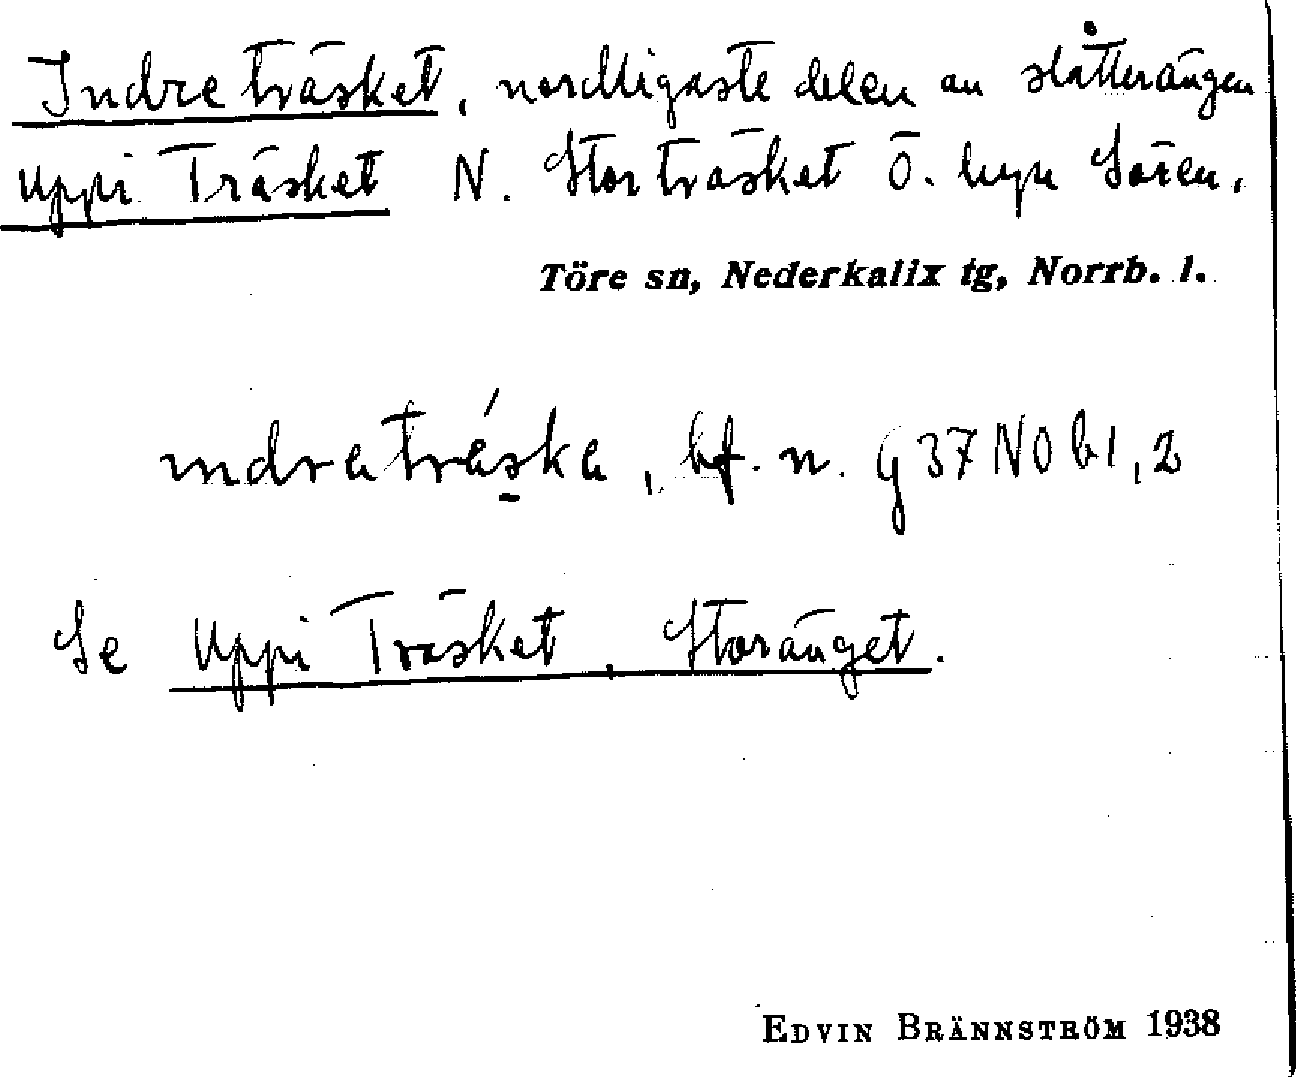 Indre träsket, nordligaste delen av slåtterängen
Uppi Träsket N. Stor träsket Ö. byn Sören.
Töre sn, Nederkalix tg, Norrb. l.
ındra träska, bf. n. g 37 NO b1, 2
Se Uppi Träsket, Storänget.
EDVIN BRÄNNSTRÖM 1938